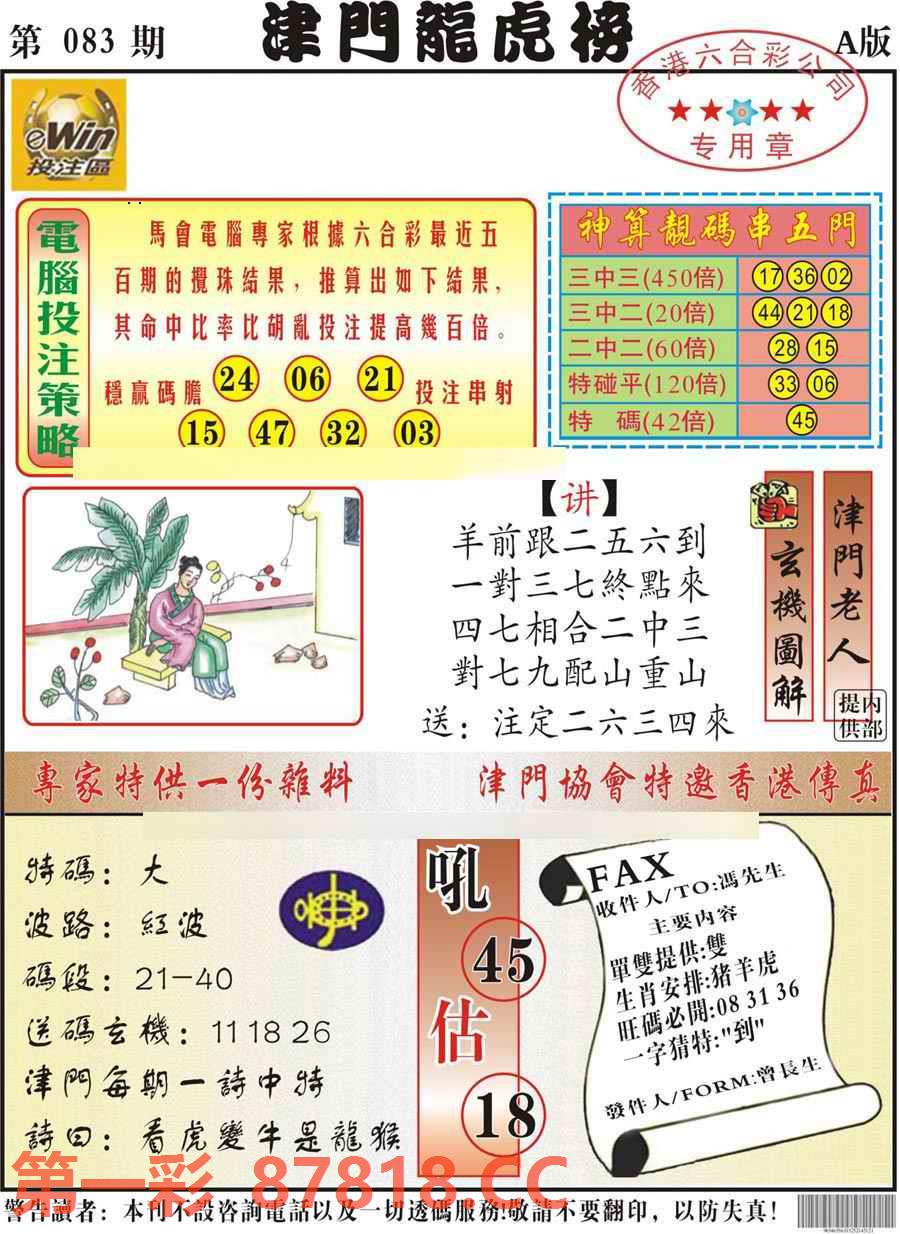 第 083 期
津門龍虎榜
A版
香港六合彩公司
专用章
eWin
投注區
電腦投注策略
馬會電腦專家根據六合彩最近五
百期的攪珠結果，推算出如下結果，
其命中比率比胡亂投注提高幾百倍。
穩贏碼膽 24 06 21 投注串射
15 47 32 03
神算靚碼串五門
三中三(450倍) 17 36 02
三中二(20倍) 44 21 18
二中二(60倍) 28 15
特碰平(120倍) 33 06
特 碼(42倍) 45
【讲】
羊前跟二五六到
一對三七終點來
四七相合二中三
對七九配山重山
送：注定二六三四來
玄機圖解
津門老人
内部提供
專家特供一份雜料
津門協會特邀香港傳真
特碼：大
波路：紅波
碼段：21—40
送碼玄機：11 18 26
津門每期一詩中特
詩曰：看虎變牛是龍猴
吼
45
估
18
FAX
收件人/TO:馮先生
主要内容
單雙提供:雙
生肖安排:猪羊虎
旺碼必開:08 31 36
一字猜特:"到"
發件人/FORM:曾長生
第一彩 87818.CC
警告讀者：本刊不設咨詢電話以及一切透碼服務!敬請不要翻印，以防失真!